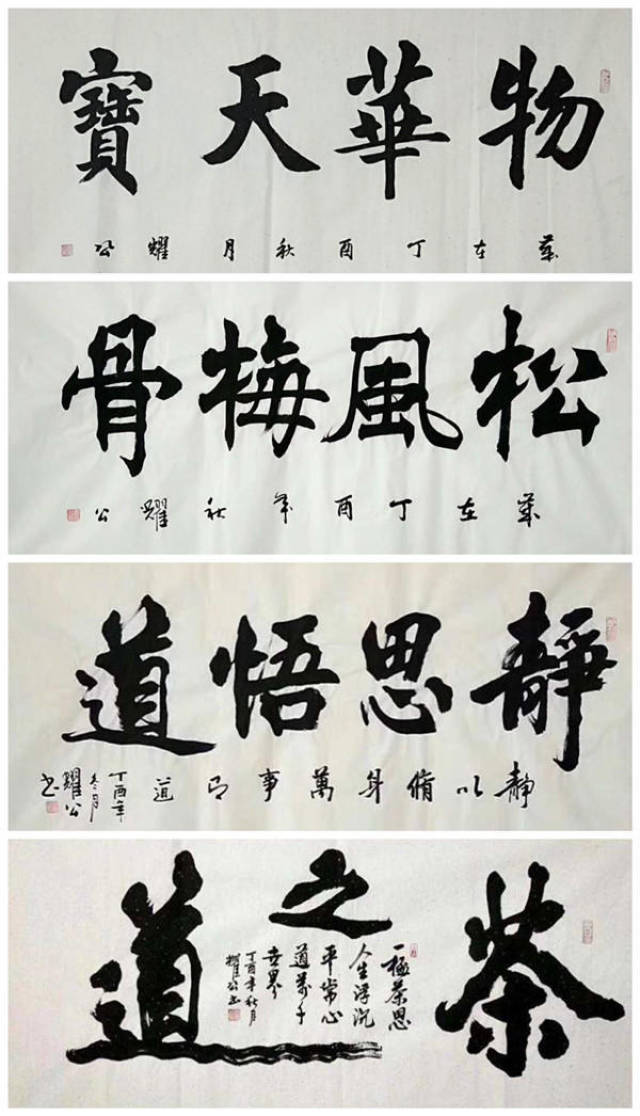 物華天寶
歲在丁酉秋月耀公
松風梅骨
歲在丁酉年秋耀公
靜思悟道
靜以脩身萬事即道
丁酉年
冬月
耀公
书
茶之道
一極茶思
人生浮沉
平常心
道萬千
世界
丁酉年秋月
耀公书